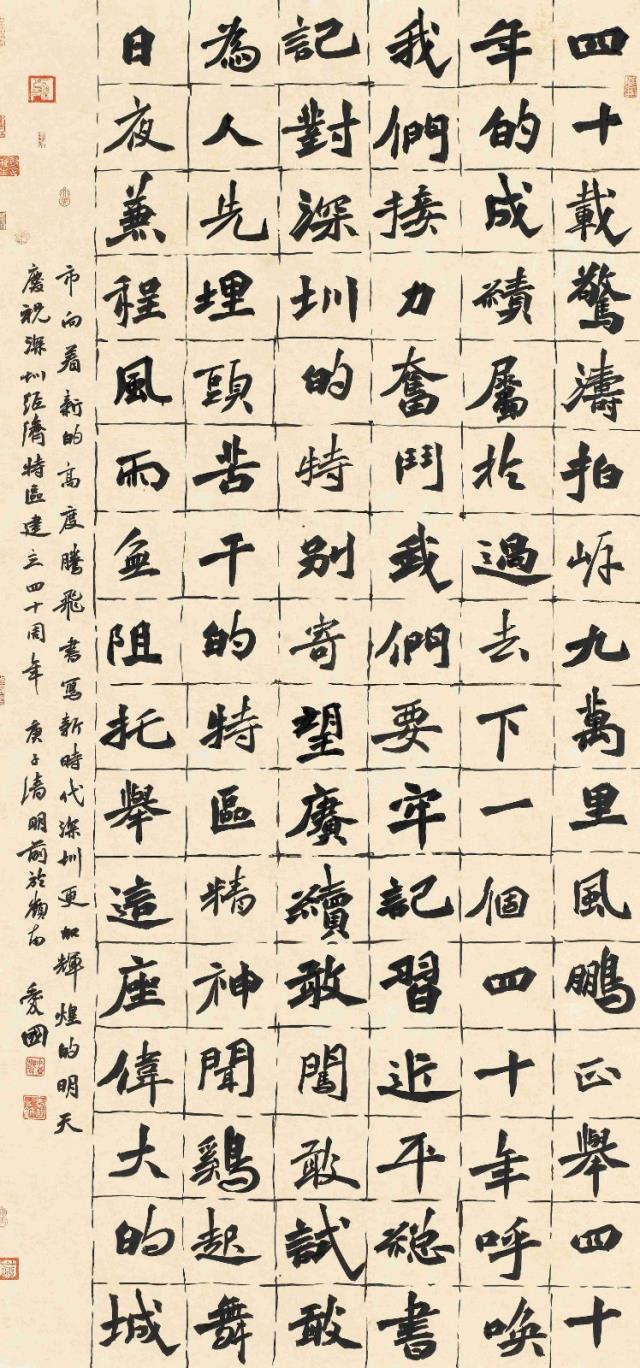 四十載驚濤拍岸九萬里風鵬正舉四十
年的成績屬於過去下一個四十年呼喚
我們接力奮鬥我們要牢記習近平總書
記對深圳的特別寄望賡續敢闖敢試敢
為人先埋頭苦干的特區精神聞鷄起舞
日夜兼程風雨無阻托舉這座偉大的城
市向着新的高度騰飛書寫新時代深圳更加輝煌的明天
慶祝深圳經濟特區建立四十周年 庚子清明前於嶺南 愛國